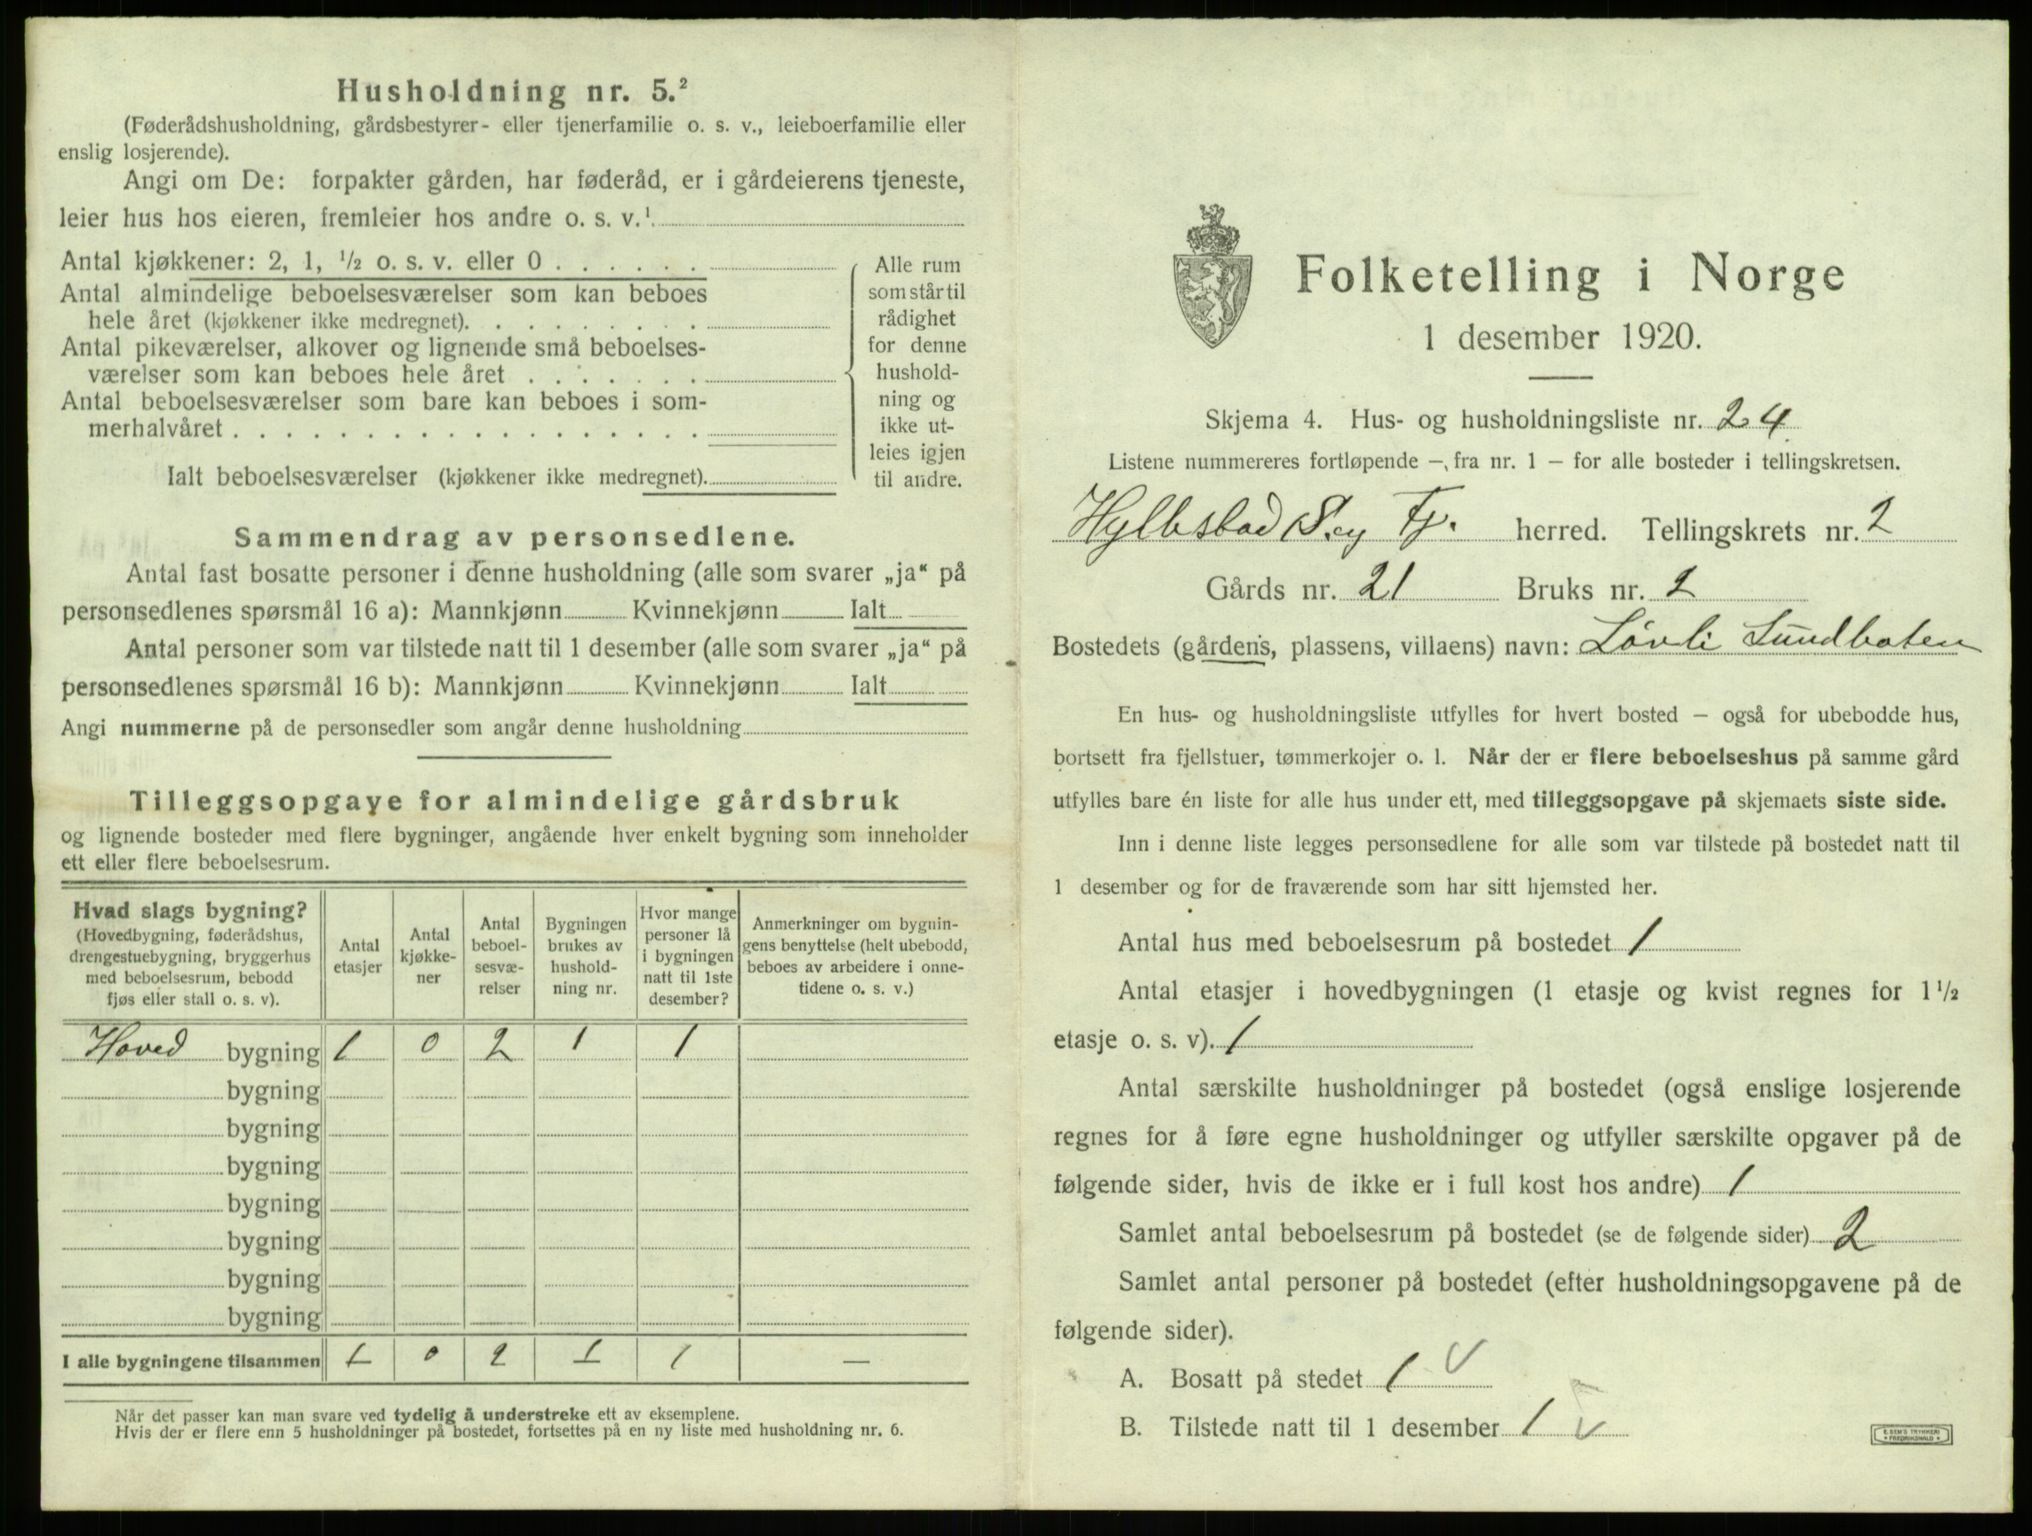 Husholdning nr. 5.²
(Føderådshusholdning, gårdsbestyrer- eller tjenerfamilie o. s. v., leieboerfamilie eller
enslig losjerende).
Angi om De: forpakter gården, har føderåd, er i gårdeierens tjeneste,
leier hus hos eieren, fremleier hos andre o. s. v.¹
Antal kjøkkener: 2, 1, ½ o. s. v. eller 0 . . . . . .
Antal almindelige beboelsesværelser som kan beboes
hele året (kjøkkener ikke medregnet). . . . . . . . .
Antal pikeværelser, alkover og lignende små beboelses-
værelser som kan beboes hele året . . . . . . .
Antal beboelsesværelser som bare kan beboes i som-
merhalvåret . . . . . . . . . . . . . . . . . .
Ialt beboelsesværelser (kjøkkener ikke medregnet).
Alle rum
som står til
rådighet
for denne
hushold-
ning og
ikke ut-
leies igjen
til andre.
Sammendrag av personsedlene.
Antal fast bosatte personer i denne husholdning (alle som svarer „ja“ på
personsedlenes spørsmål 16 a): Mannkjønn Kvinnekjønn Ialt
Antal personer som var tilstede natt til 1 desember (alle som svarer „ja“ på
personsedlenes spørsmål 16 b): Mannkjønn Kvinnekjønn Ialt
Angi nummerne på de personsedler som angår denne husholdning
Tilleggsopgave for almindelige gårdsbruk
og lignende bosteder med flere bygninger, angående hver enkelt bygning som inneholder
ett eller flere beboelsesrum.
Hvad slags bygning?
(Hovedbygning, føderådshus,
drengestuebygning, bryggerhus
med beboelsesrum, bebodd
fjøs eller stall o. s. v).
Antal
etasjer
Antal
kjøkke-
ner
Antal
beboel-
sesvæ-
relser
Bygningen
brukes av
hushold-
ning nr.
Hvor mange
personer lå
i bygningen
natt til 1ste
desember?
Anmerkninger om bygnin-
gens benyttelse (helt ubebodd,
beboes av arbeidere i onne-
tidene o. s. v.)
Hoved bygning 1 0 2 1 1
bygning
bygning
bygning
bygning
bygning
bygning
bygning
I alle bygningene tilsammen 1 0 2 1 1 —
Når det passer kan man svare ved tydelig å understreke ett av eksemplene.
Hvis der er flere enn 5 husholdninger på bostedet, fortsettes på en ny liste med husholdning nr. 6.
Folketelling i Norge
1 desember 1920.
Skjema 4. Hus- og husholdningsliste nr. 24
Listene nummereres fortløpende – fra nr. 1 – for alle bosteder i tellingskretsen.
herred. Tellingskrets nr. 2
Gårds nr. 21 Bruks nr. 2
Bostedets (gårdens, plassens, villaens) navn: Løvli
En hus- og husholdningsliste utfylles for hvert bosted – også for ubebodde hus,
bortsett fra fjellstuer, tømmerkojer o. l. Når der er flere beboelseshus på samme gård
utfylles bare én liste for alle hus under ett, med tilleggsopgave på skjemaets siste side.
Inn i denne liste legges personsedlene for alle som var tilstede på bostedet natt til
1 desember og for de fraværende som har sitt hjemsted her.
Antal hus med beboelsesrum på bostedet 1
Antal etasjer i hovedbygningen (1 etasje og kvist regnes for 1½
etasje o. s. v). 1
Antal særskilte husholdninger på bostedet (også enslige losjerende
regnes for å føre egne husholdninger og utfyller særskilte opgaver på de
følgende sider, hvis de ikke er i full kost hos andre) 1
Samlet antal beboelsesrum på bostedet (se de følgende sider) 2
Samlet antal personer på bostedet (efter husholdningsopgavene på de
følgende sider).
A. Bosatt på stedet 1
B. Tilstede natt til 1 desember 1
E. SEM'S TRYKKERI
FREDRIKSHALD